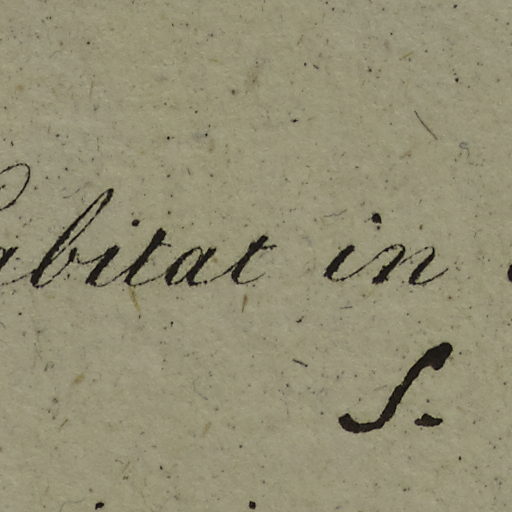 abitat in
S.